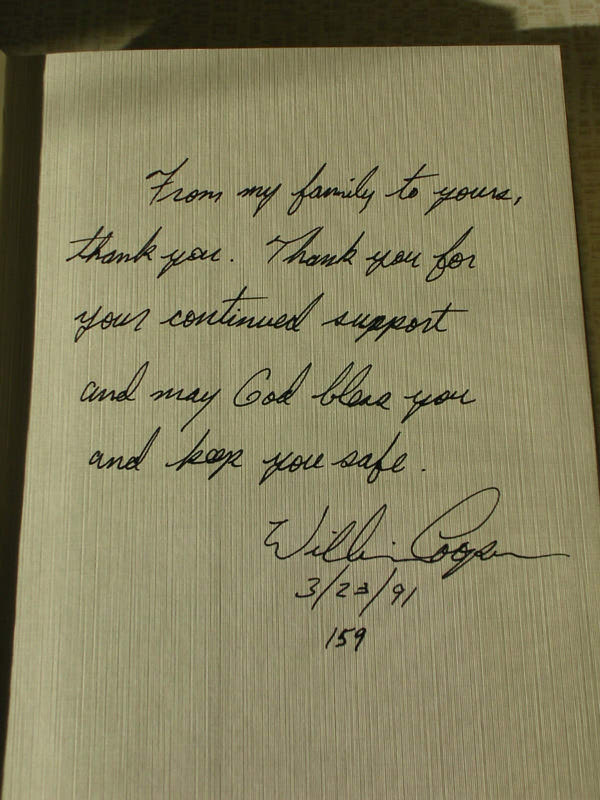 From my family to yours,
thank you. Thank you for
your continued support
and may God bless you
and keep you safe.
William Cooper
3/23/91
159